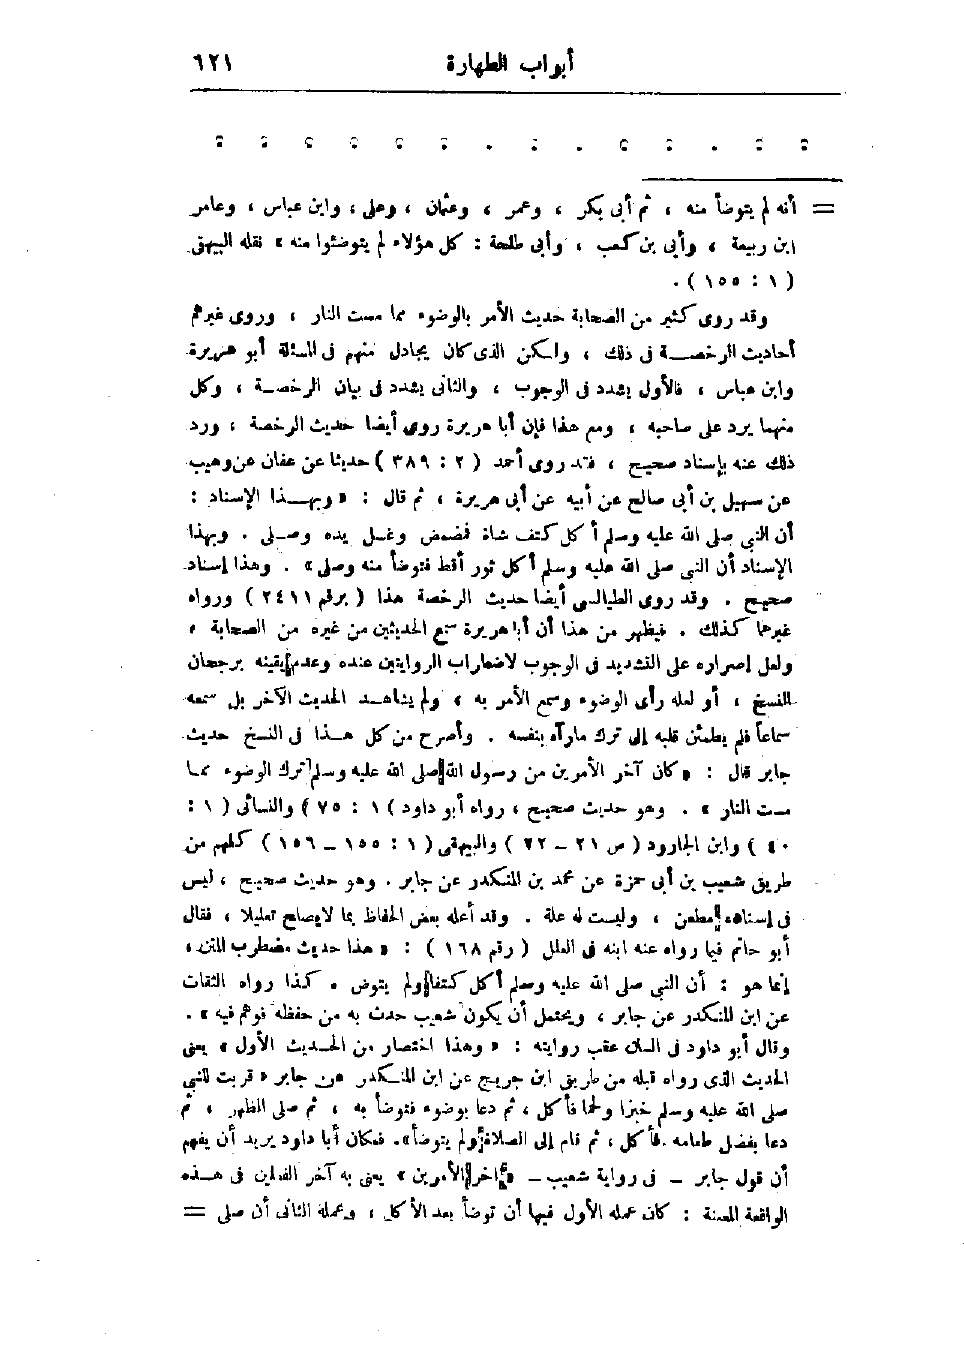 أبواب الطهارة ٦٢١
= أنه لم يتوضأ منه ، ثم أبى بكر ، وعمر ، وعثمان ، وعلى ، وابن عباس ، وعامر
ابن ربيعة ، وأبى بن كعب ، وأبى طلحة : كل هؤلاء لم يتوضئوا منه » نقله البيهقى
( ١ : ١٥٥ ) .
وقد روى كثير من الصحابة حديث الأمر بالوضوء مما مست النار ، وروى غيرهم
أحاديث الرخصة فى ذلك ، ولكن الذى كان يجادل منهم فى المسئلة أبو هريرة
وابن عباس ، فالأول يشدد فى الوجوب ، والثانى يشدد فى بيان الرخصة ، وكل
منهما يرد على صاحبه ، ومع هذا فإن أبا هريرة روى أيضا حديث الرخصة ، ورد
ذلك عنه بإسناد صحيح ، فقد روى أحمد ( ٢ : ٣٨٩ ) حديثا عن عفان عن وهيب
عن سهيل بن أبى صالح عن أبيه عن أبى هريرة ، ثم قال : « وبهذا الإسناد :
أن النبى صلى الله عليه وسلم أكل كتف شاة فمضمض وغسل يده وصلى . وبهذا
الإسناد أن النبى صلى الله عليه وسلم أكل ثور أقط فتوضأ منه وصلى » . وهذا إسناد
صحيح . وقد روى الطيالسى أيضا حديث الرخصة هذا ( برقم ٢٤١١ ) ورواه
غيرهما كذلك . فيظهر من هذا أن أبا هريرة سمع الحديثين من غيره من الصحابة ،
ولعل إصراره على التشديد فى الوجوب لاضطراب الروايتين عنده وعدم يقينه برجحان
النسخ ، أو لعله رأى الوضوء وسمع الأمر به ، ولم يشاهد الحديث الآخر بل سمعه
سماعا فلم يطمئن قلبه إلى ترك مارآه بنفسه . وأصرح من كل هذا فى النسخ حديث
جابر قال : « كان آخر الأمرين من رسول الله صلى الله عليه وسلم ترك الوضوء مما
مست النار » . وهو حديث صحيح ، رواه أبو داود ) ١ : ٧٥ ) والنسائى ( ١ :
٤٠ ) وابن الجارود ( ص ٢١ – ٢٢ ) والبيهقى ( ١ : ١٥٥ – ١٥٦ ) كلهم من
طريق شعيب بن أبى حمزة عن محمد بن المنكدر عن جابر . وهو حديث صحيح ، ليس
فى إسناده مطعن ، وليست له علة . وقد أعله بعض الحفاظ بما لايصلح تعليلا ، فقال
أبو حاتم فيما رواه عنه ابنه فى العلل ( رقم ١٦٨ ) : « هذا حديث مضطرب المتن ،
إنما هو : أن النبى صلى الله عليه وسلم أكل كتفا ولم يتوض . كذا رواه الثقات
عن ابن المنكدر عن جابر ، ويحتمل أن يكون شعيب حدث به من حفظه فوهم فيه » .
وقال أبو داود فى السنن عقب روايته : « وهذا اختصار من الحديث الأول » يعنى
الحديث الذى رواه قبله من طريق ابن جريج عن ابن المنكدر عن جابر « قربت للنبى
صلى الله عليه وسلم خبزا ولحما فأكل ، ثم دعا بوضوء فتوضأ به ، ثم صلى الظهر ، ثم
دعا بفضل طعامه فأكل ، ثم قام إلى الصلاة ولم يتوضأ » . فكان أبا داود يريد أن يفهم
أن قول جابر – فى رواية شعيب – « آخر الأمرين » يعنى به آخر الفعلين فى هذه
الواقعة المعينة : كان عمله الأول فيها أن توضأ بعد الأكل ، وعمله الثانى أن صلى =